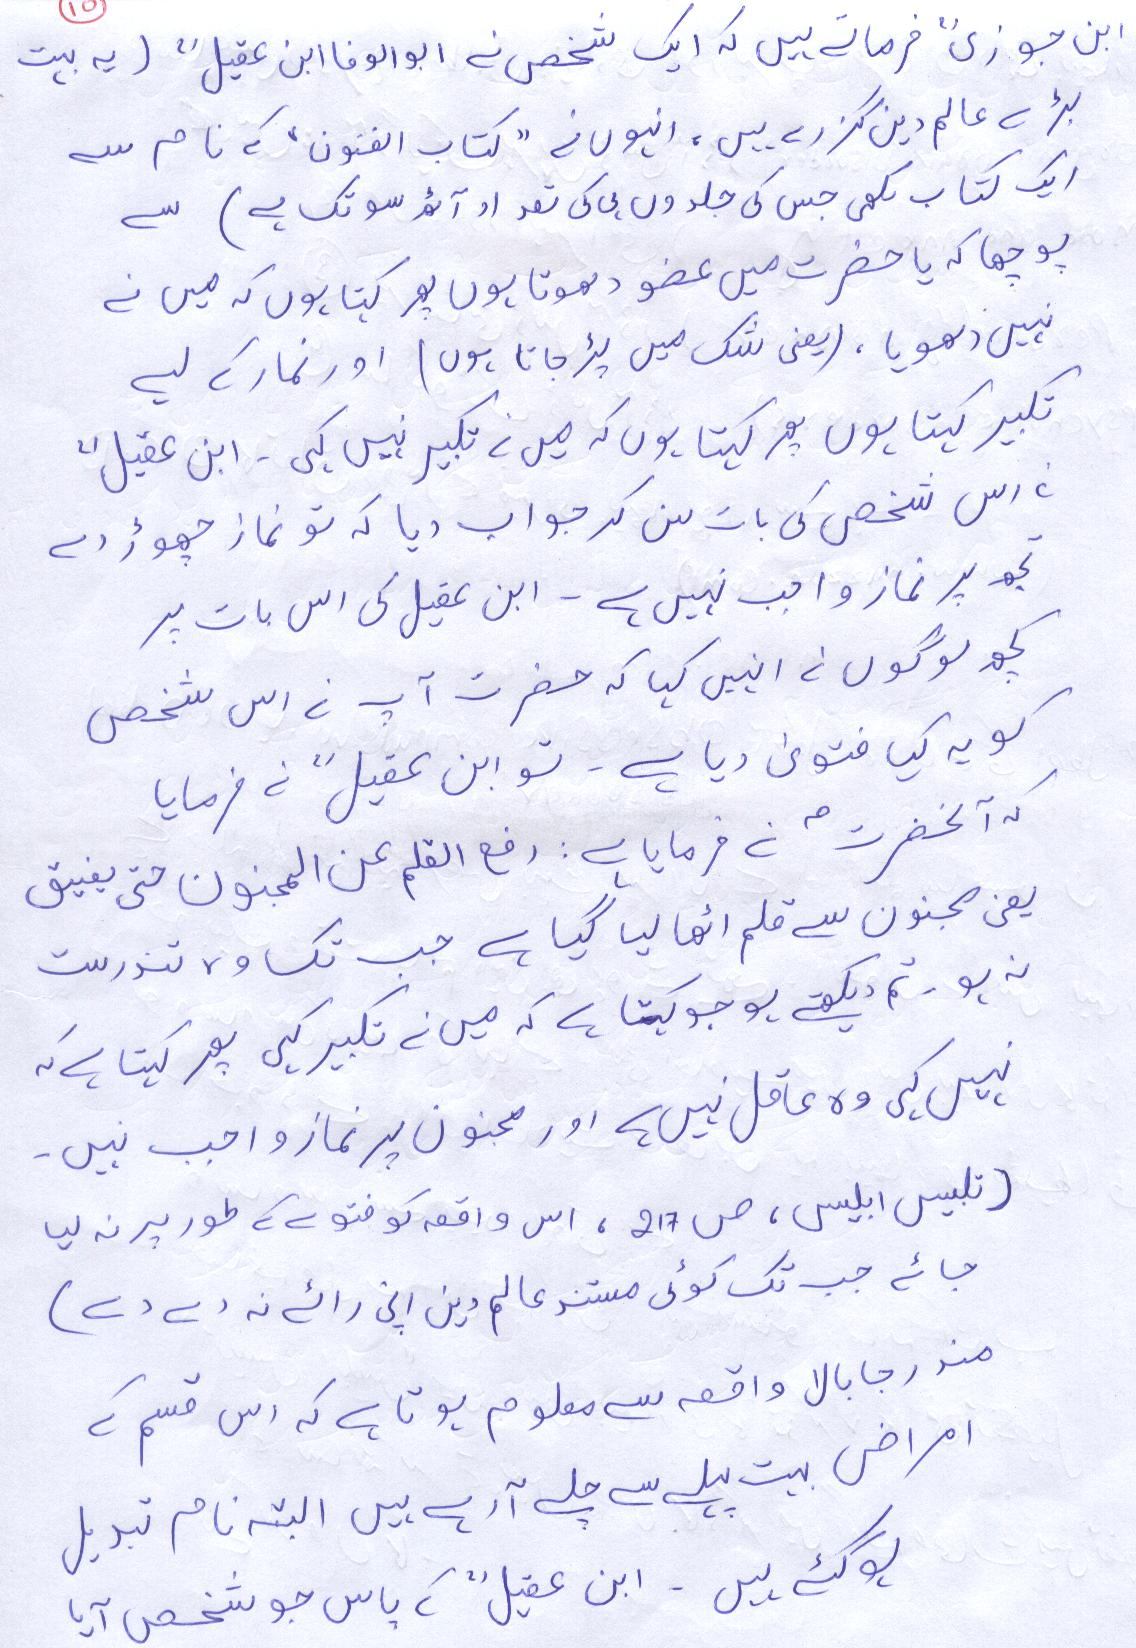 10
ابن جوزیؒ فرماتے ہیں کہ ایک شخص نے ابوالوفا ابن عقیلؒ (یہ بہت
بڑے عالم دین گزرے ہیں، انہوں نے "کتاب الفنون" کے نام سے
ایک کتاب لکھی جس کی جلدوں ہی کی تعداد آٹھ سو تک ہے) سے
پوچھا کہ یا حضرت میں عضو دھوتا ہوں پھر کہتا ہوں کہ میں نے
نہیں دھویا، (یعنی شک میں پڑ جاتا ہوں) اور نماز کے لیے
تکبیر کہتا ہوں پھر کہتا ہوں کہ میں نے تکبیر نہیں کہی ۔ ابن عقیلؒ
نے اس شخص کی بات سن کر جواب دیا کہ تو نماز چھوڑ دے
تجھ پر نماز واجب نہیں ہے ۔ ابن عقیل کی اس بات پر
کچھ لوگوں نے انہیں کہا کہ حضرت آپ نے اس شخص
کو یہ کیا فتویٰ دیا ہے ۔ تو ابن عقیلؒ نے فرمایا
کہ آنحضرتؐ نے فرمایا ہے : رفع القلم عن المجنون حتی یفیق
یعنی مجنون سے قلم اٹھا لیا گیا ہے جب تک وہ تندرست
نہ ہو ۔ تم دیکھتے ہو جو کہتا ہے کہ میں نے تکبیر کہی پھر کہتا ہے کہ
نہیں کہی وہ عاقل نہیں ہے اور مجنون پر نماز واجب نہیں ۔
(تلبیس ابلیس، ص 217، اس واقعہ کو فتوے کے طور پر نہ لیا
جائے جب تک کوئی مستند عالم دین اپنی رائے نہ دے دے)
مندرجا بالا واقعہ سے معلوم ہوتا ہے کہ اس قسم کے
امراض بہت پہلے سے چلے آ رہے ہیں البتہ نام تبدیل
ہو گئے ہیں ۔ ابن عقیلؒ کے پاس جو شخص آیا